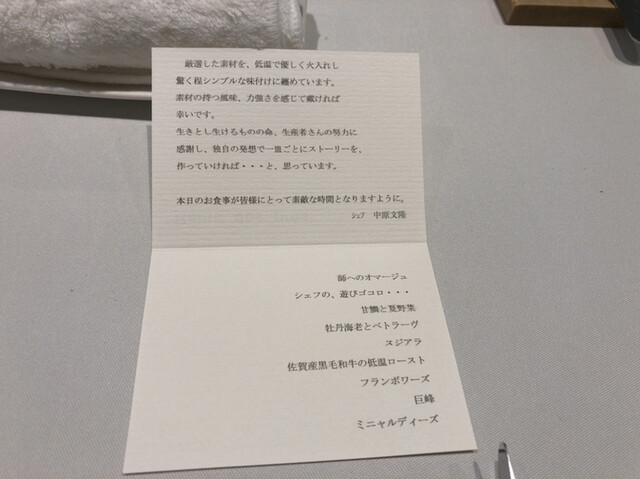 厳選した素材を、低温で優しく火入れし
驚く程シンプルな味付けに纏めています。
素材の持つ風味、力強さを感じて戴ければ
幸いです。
生きとし生けるものの命、生産者さんの努力に
感謝し、独自の発想で一皿ごとにストーリーを、
作っていければ・・・と、思っています。
本日のお食事が皆様にとって素敵な時間となりますように。
シェフ 中原文隆
師へのオマージュ
シェフの、遊びゴコロ・・・
甘鯛と夏野菜
牡丹海老とベトラーヴ
スジアラ
佐賀産黒毛和牛の低温ロースト
フランボワーズ
巨峰
ミニャルディーズ